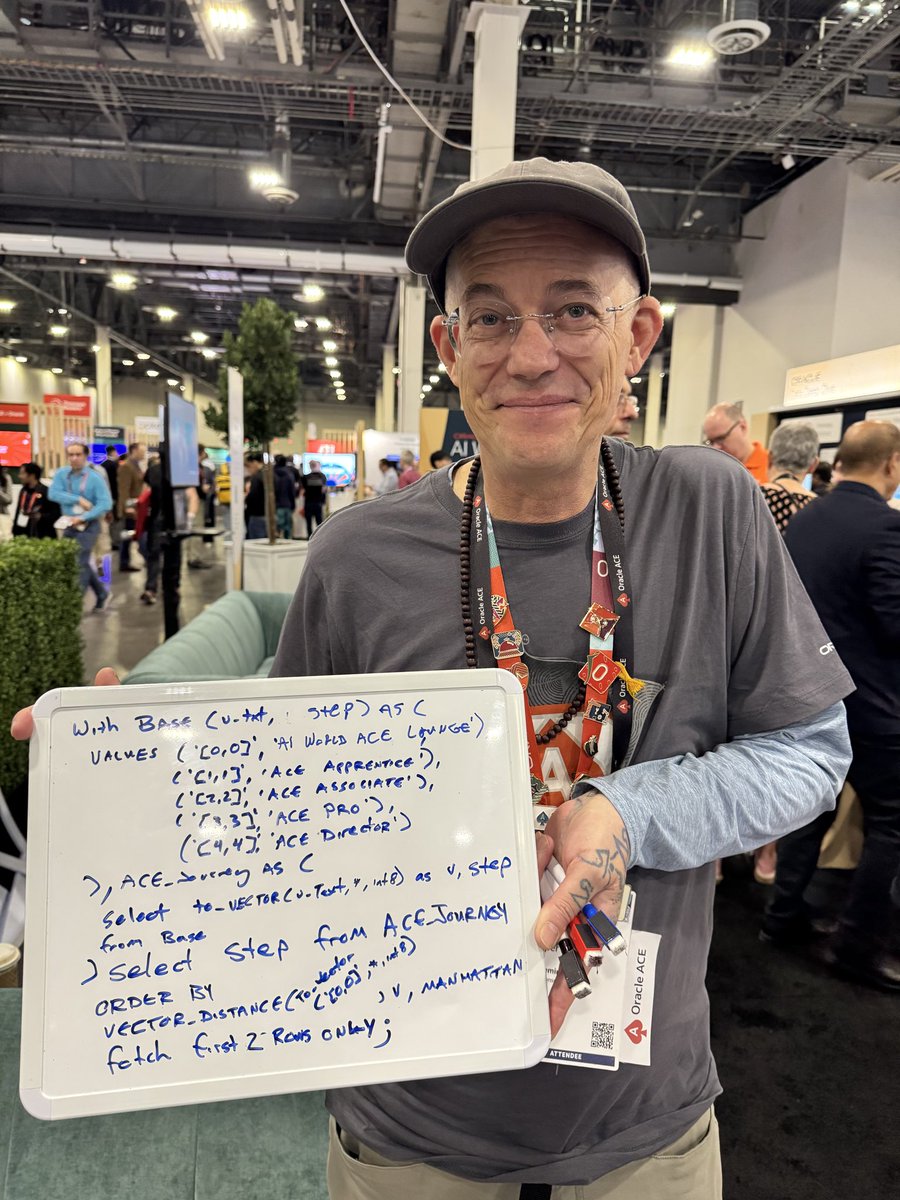 With BASE (v-txt, step) AS (
VALUES ('[0,0]', 'AI WORLD ACE LOUNGE')
('[1,1]', 'ACE APPRENTICE'),
('[2,2]', 'ACE ASSOCIATE'),
('[3,3]', 'ACE PRO'),
('[4,4]', 'ACE DIRECTOR')
), ACE_Journey AS (
select to_VECTOR(v-Text, *, int8) as v, step
from Base
) select step from ACE_JOURNEY
ORDER BY
VECTOR_DISTANCE(to_vector('[0,0]', *, int8), v, MANHATTAN
fetch first 2 Rows only;
Oracle ACE
Oracle ACE
Oracle ACE
Oracle ACE
ATTENDEE
ORACLE